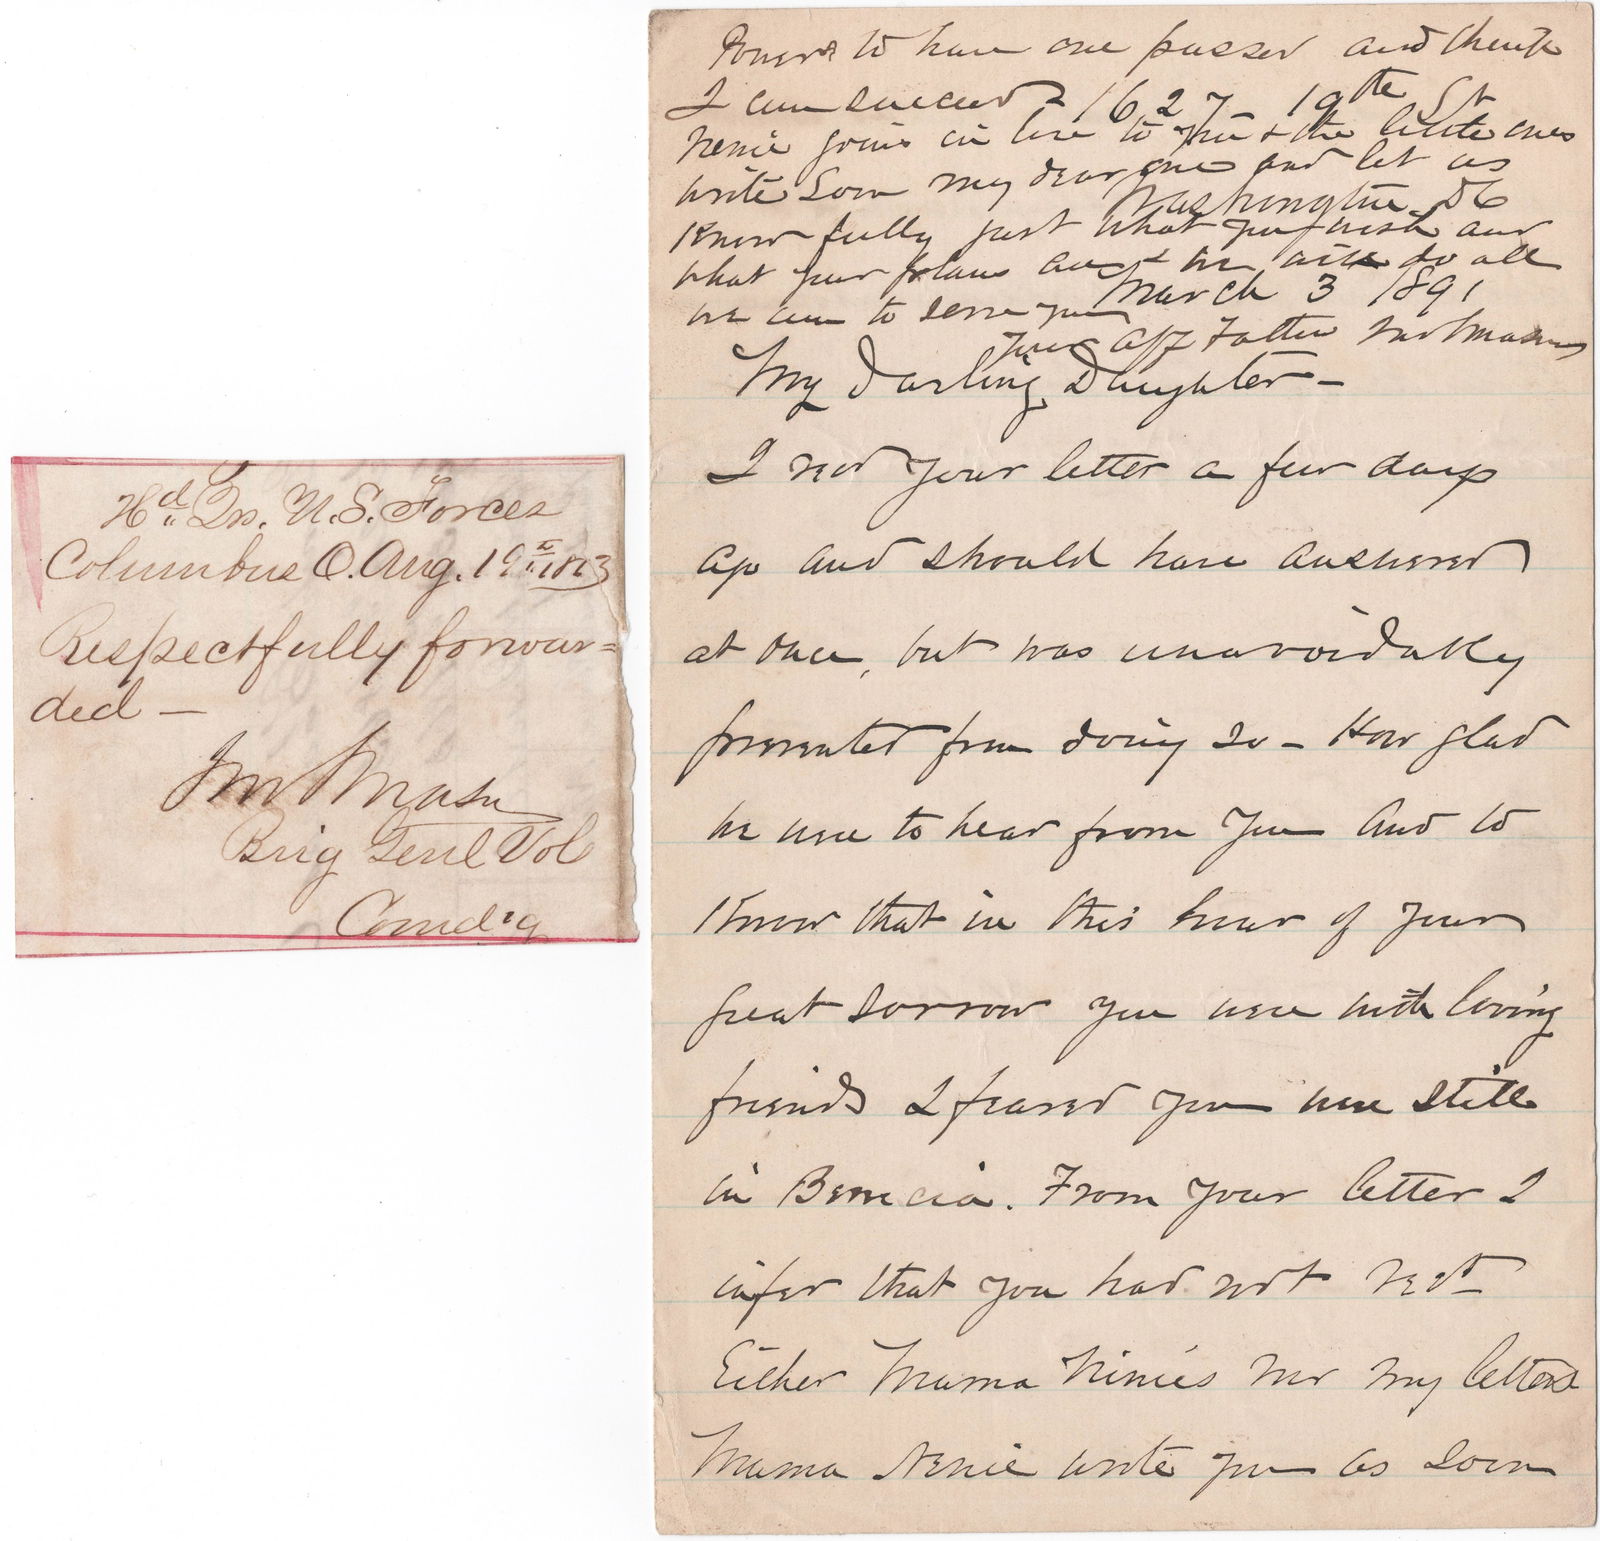 Hd. Qrs. U.S. Forces
Columbus O. Aug. 19th 1863
Respectfully forwar=
ded —
Jno S Mason
Brig Genl Vol
Comd'g
to have one passed and think
I can succeed
1627 – 19th St
Nenie joins in love to you & the little ones
write soon my dear one and let us
Washington DC
Know fully just what you wish and
what your plans are & we will do all
March 3 1891
we can to serve you
Your Aff Father Jno S Mason
My Darling Daughter –
I recd your letter a few days
ago and should have answered
at once, but was unavoidably
prevented from doing so – How glad
we were to hear from you and to
Know that in this hour of your
great sorrow you were with loving
friends I feared you were still
in Benicia. From your letter I
infer that you had not recd
Either Mama Ninies nor my letters
Mama Nenie wrote you as soon